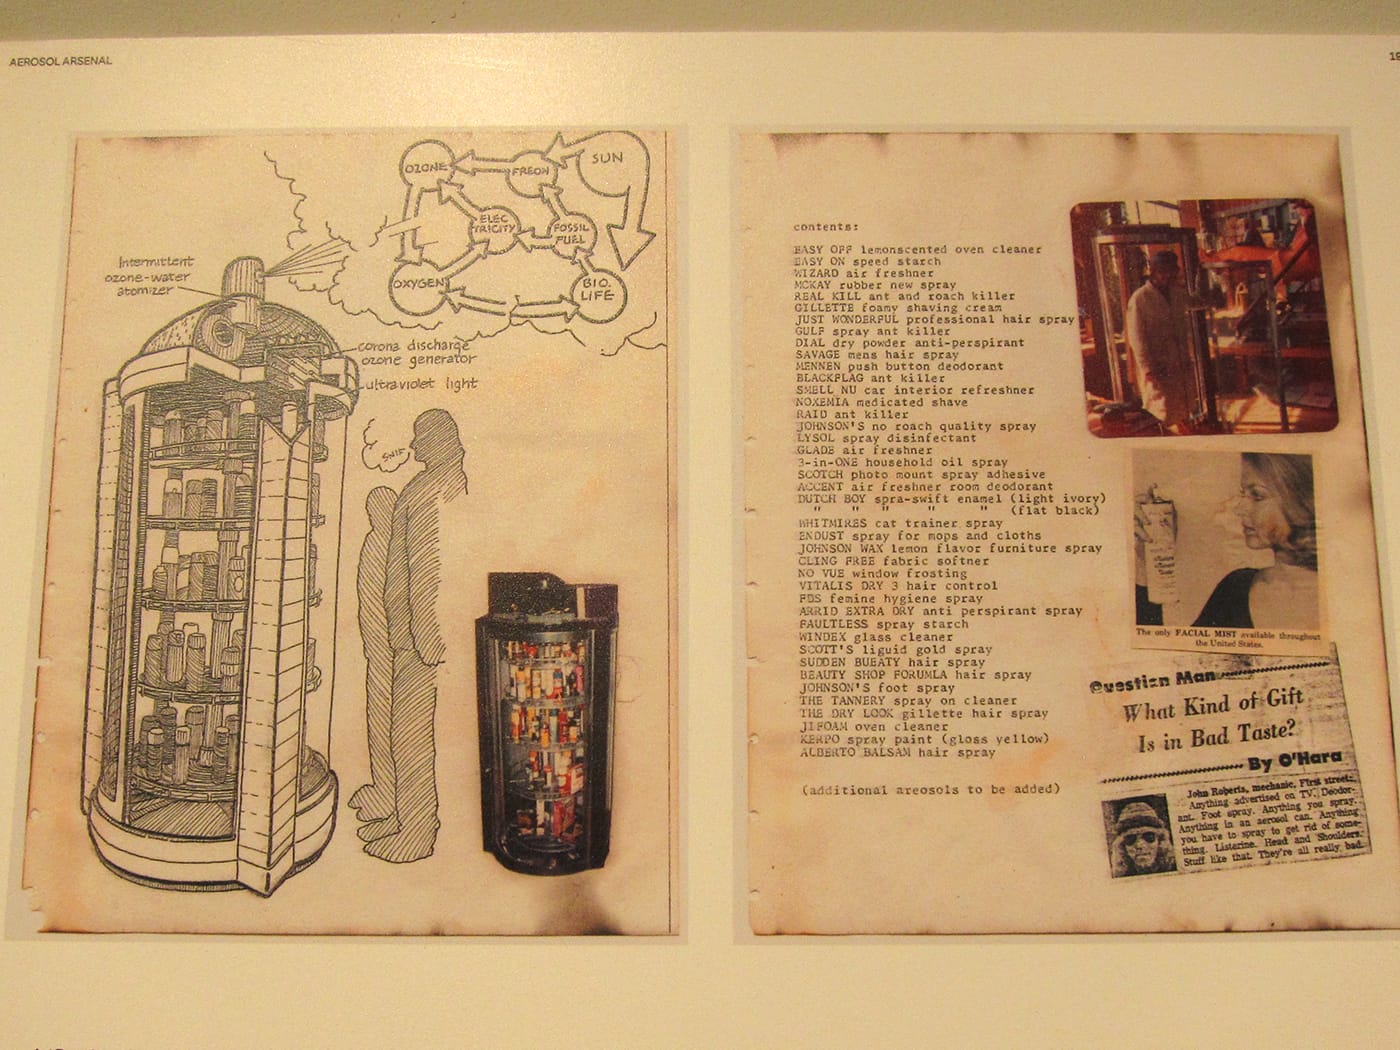 AEROSOL ARSENAL
19
OZONE
FREON
SUN
ELEC
TRICITY
FOSSIL
FUEL
OXYGEN
BIO.
LIFE
Intermittent
ozone-water
atomizer
corona discharge
ozone generator
ultraviolet light
SNIF
contents:
EASY OFF lemonscented oven cleaner
EASY ON speed starch
WIZARD air freshner
MCKAY rubber new spray
REAL KILL ant and roach killer
GILLETTE foamy shaving cream
JUST WONDERFUL professional hair spray
GULF spray ant killer
DIAL dry powder anti-perspirant
SAVAGE mens hair spray
MENNEN push button deodorant
BLACKFLAG ant killer
SMELL NU car interior refreshner
NOXEMIA medicated shave
RAID ant killer
JOHNSON'S no roach quality spray
LYSOL spray disinfectant
GLADE air freshner
3-in-ONE household oil spray
SCOTCH photo mount spray adhesive
ACCENT air freshner room deodorant
DUTCH BOY spra-swift enamel (light ivory)
" " " " " (flat black)
WHITMIRES cat trainer spray
ENDUST spray for mops and cloths
JOHNSON WAX lemon flavor furniture spray
CLING FREE fabric softner
NO VUE window frosting
VITALIS DRY 3 hair control
FDS femine hygiene spray
ARRID EXTRA DRY anti perspirant spray
FAULTLESS spray starch
WINDEX glass cleaner
SCOTT'S liguid gold spray
SUDDEN BUEATY hair spray
BEAUTY SHOP FORUMLA hair spray
JOHNSON'S foot spray
THE TANNERY spray on cleaner
THE DRY LOOK gillette hair spray
JIFOAM oven cleaner
KERPO spray paint (gloss yellow)
ALBERTO BALSAM hair spray
(additional areosols to be added)
The only FACIAL MIST available throughout
the United States.
Question Man
What Kind of Gift
Is in Bad Taste?
By O'Hara
John Roberts, mechanic, First street:
Anything advertised on TV. Deodor-
ant. Foot spray. Anything you spray.
Anything in an aerosol can. Anything
you have to spray to get rid of some-
thing. Listerine. Head and Shoulders.
Stuff like that. They're all really bad.